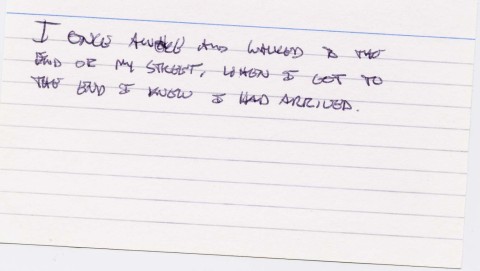 I ONCE AWOKE AND WALKED to THE
END OF MY STREET, WHEN I GOT TO
THE END I KNEW I HAD ARRIVED.